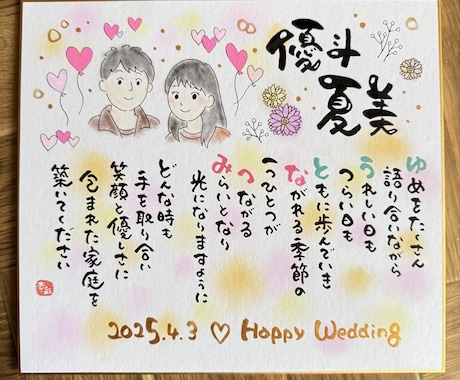 優斗
夏美
ゆめをたくさん
語り合いながら
うれしい日も
つらい日も
ともに歩んでいき
ながれる季節の
一つひとつが
つながる
みらいとなり
光になりますように
どんな時も
手を取り合い
笑顔と優しさに
包まれた家庭を
築いてください
2025.4.3 ♡ Happy Wedding